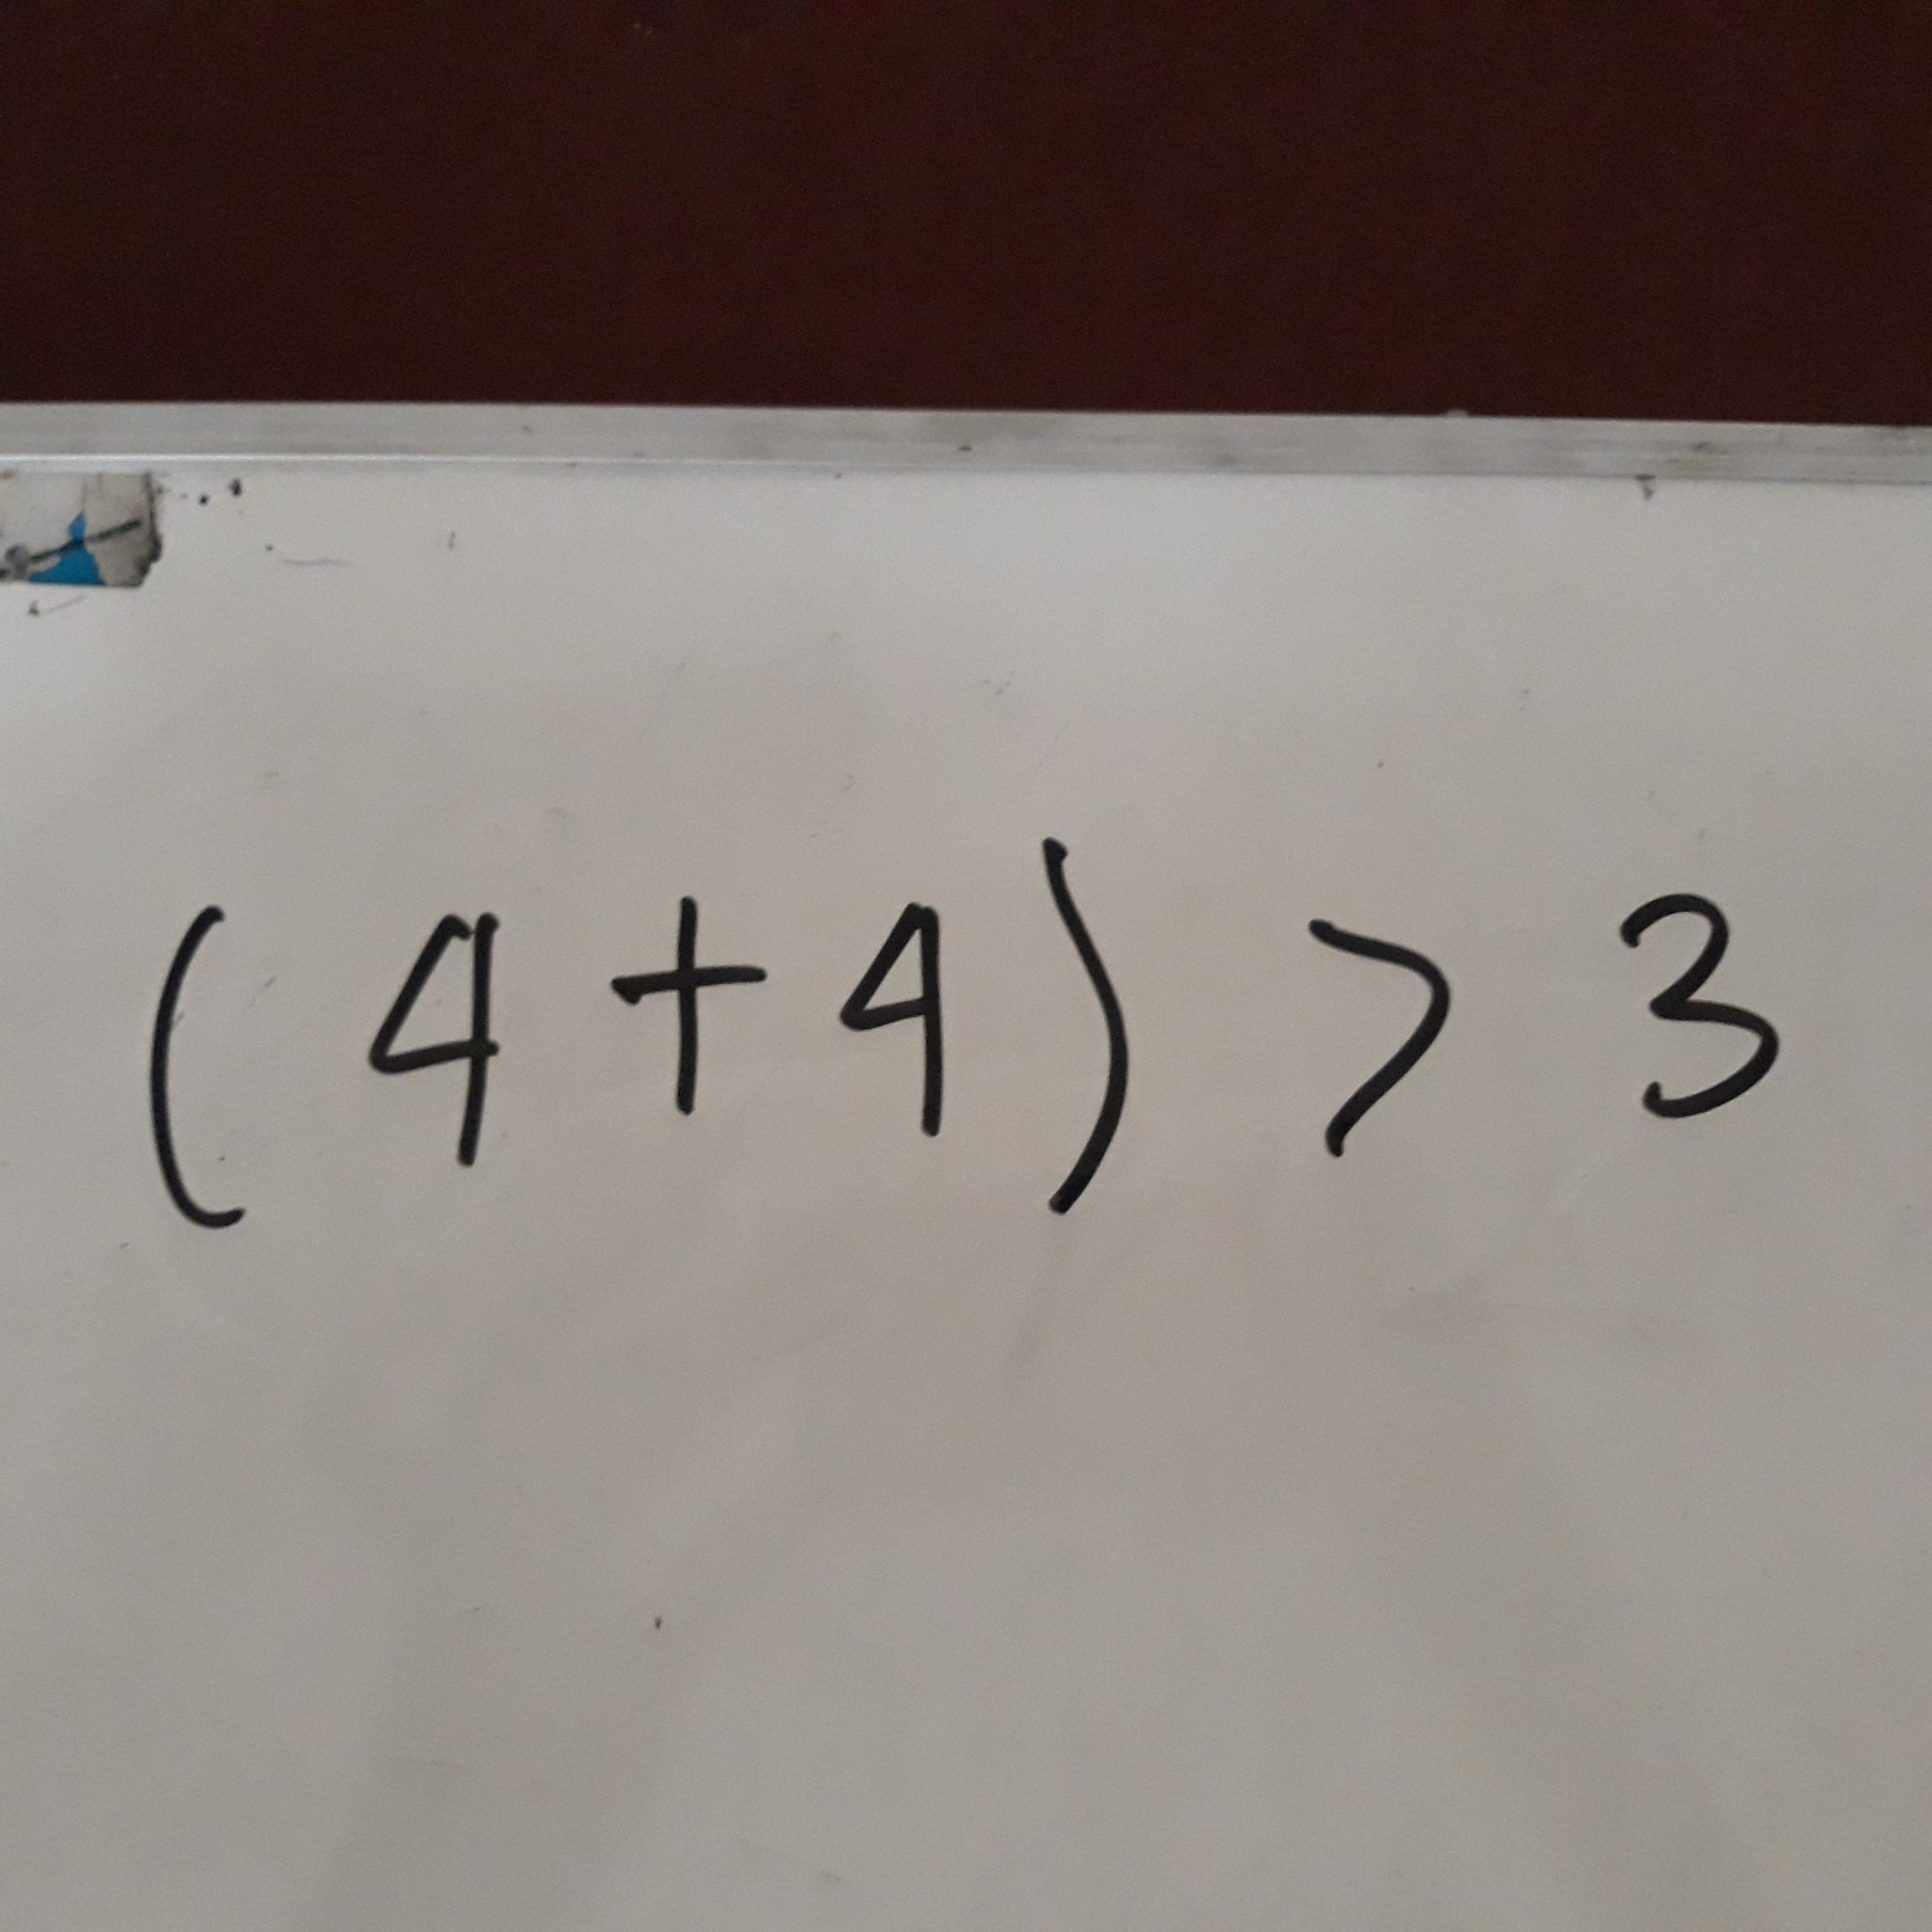 ( 4 + 4 ) > 3